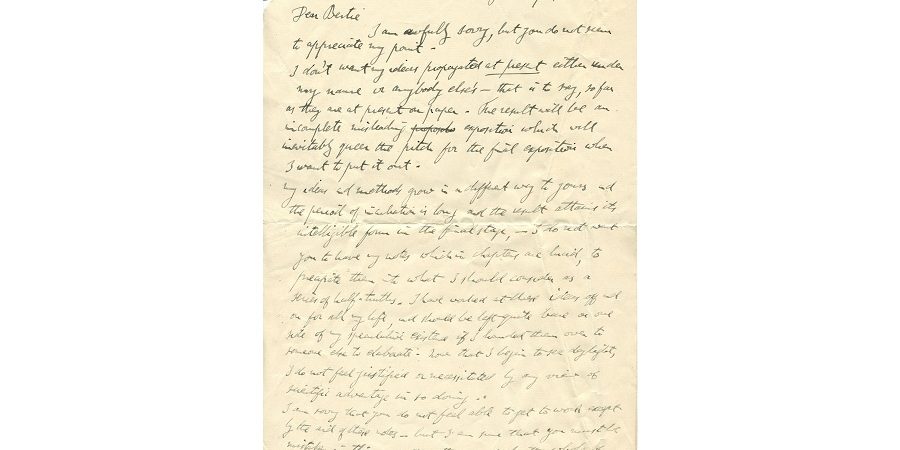 Dear Bertie
I am awfully sorry, but you do not seem
to appreciate my point -
I don't want my ideas propagated at present either under
my name or anybody else's - that is to say, so far
as they are at present on paper - The result will be an
incomplete misleading exposition which will
inevitably queer the pitch for the final exposition when
I want to put it out -
My ideas and methods grow in a different way to yours and
the period of incubation is long and the result attains its
intelligible form in the final stage, - I do not want
you to have my notes which in chapters are lucid, to
precipitate them into what I should consider as a
series of half-truths. I have worked at these ideas off and
on for all my life, and should be left quite bare on one
side of my speculative existence if I handed them over to
someone else to elaborate - Now that I begin to see daylight,
I do not feel justified or necessitated by any view of
scientific advantage in so doing ..
I am sorry that you do not feel able to get to work except
by the aid of these notes - but I am sure that you must be
mistaken in this